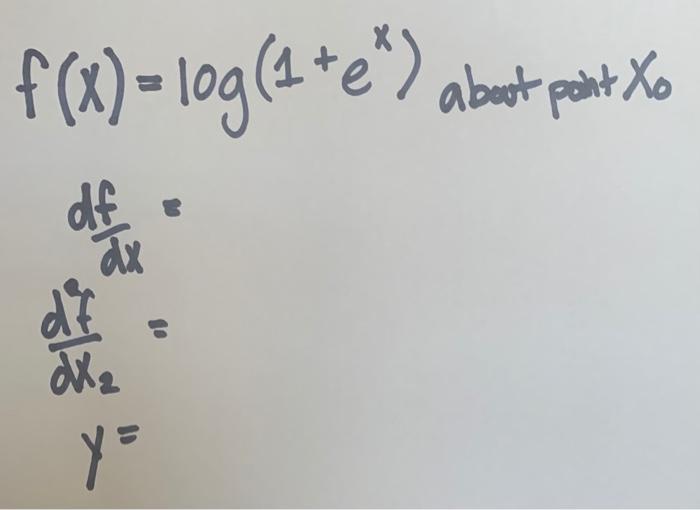 f(x) = log(1+eˣ) about point X₀
df/dx =
d²f/dx₂ =
y =